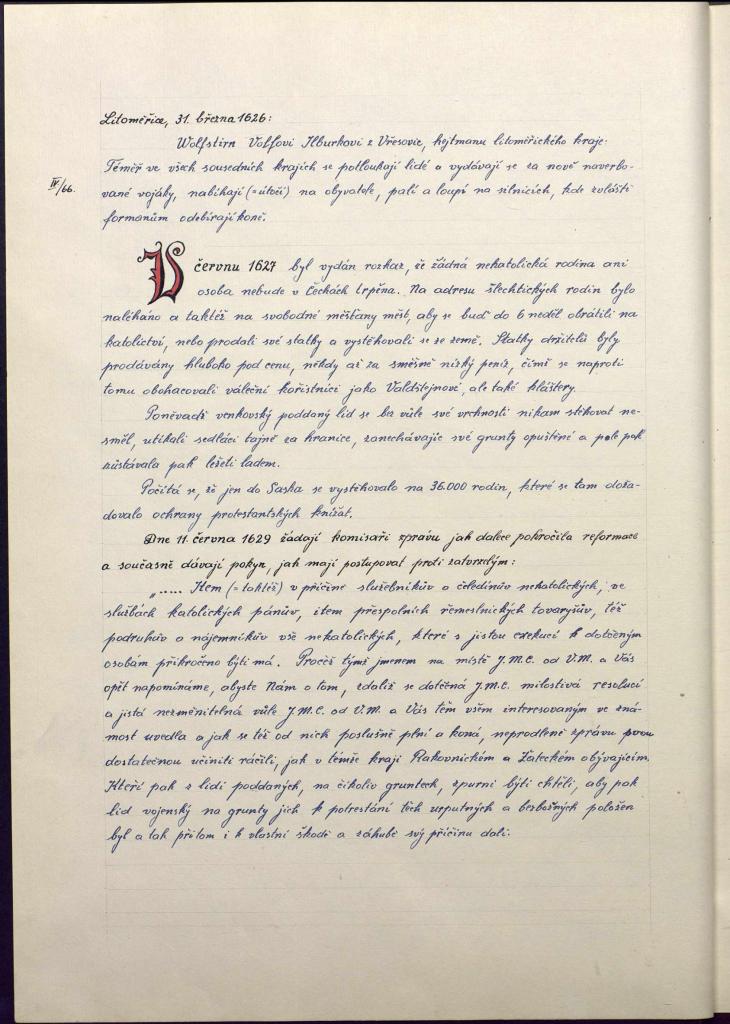 Litoměřice, 31. března 1626:
Wolfstirn Volfovi Ilburkovi z Vřesovic, hejtmanu litoměřického kraje:
Téměř ve všech sousedních krajích se potloukají lidé a vydávají se za nově naverbo-
IV/66.
vané vojáky, nabíhají (= útočí) na obyvatele, palí a loupí na silnicích, kde zvláště
formanům odebírají koně.
V červnu 1627 byl vydán rozkaz, že žádná nekatolická rodina ani
osoba nebude v Čechách trpěna. Na adresu šlechtických rodin bylo
naléháno a taktéž na svobodné měšťany měst, aby se buď do 6 neděl obrátili na
katolictví, nebo prodali své statky a vystěhovali se ze země. Statky držitelů byly
prodávány hluboko pod cenu, někdy až za směšně nízký peníz, čímž se naproti
tomu obohacovali váleční kořistníci jako Valdštejnové, ale také kláštery.
Poněvadž venkovský poddaný lid se bez vůle své vrchnosti nikam stěhovat ne-
směl, utíkali sedláci tajně za hranice, zanechávajíc své grunty opuštěné a pole pak
zůstávala pak ležeti ladem.
Počítá se, že jen do Saska se vystěhovalo na 36.000 rodin, které se tam doža-
dovalo ochrany protestantských knížat.
Dne 11. června 1629 žádají komisaři zprávu jak dalece pokročila reformace
a současně dávají pokyn, jak mají postupovat proti zatvrzelým:
"..... Item (= taktéž) v příčině služebníkův a čeledínův nekatolických, ve
službách katolických pánův, item přespolních řemeslnických tovaryšův, též
podruhův a nájemníkův vše nekatolických, které s jistou exekucí k dotčeným
osobám přikročeno býti má. Pročež týmž jmenem na místě J.M.C. od V.M. a Vás
opět napomínáme, abyste Nám o tom, zdaliž se dotčená J.M.C. milostivá resolucí
a jistá nezměnitelná vůle J.M.C. od V.M. a Vás těm všem interesovaným ve zná-
most uvedla a jak se též od nich poslušně plní a koná, neprodleně zprávu svou
dostatečnou učiniti ráčili, jak v témže kraji Rakovnickém a Žateckém obývajícím.
Kteří pak z lidí poddaných, na číkoliv gruntech, zpurni býti chtěli, aby pak
lid vojenský na grunty jich k potrestání těch urputných a bezbožných položen
byl a tak přitom i k vlastní škodě a záhubě svý příčinu dali.